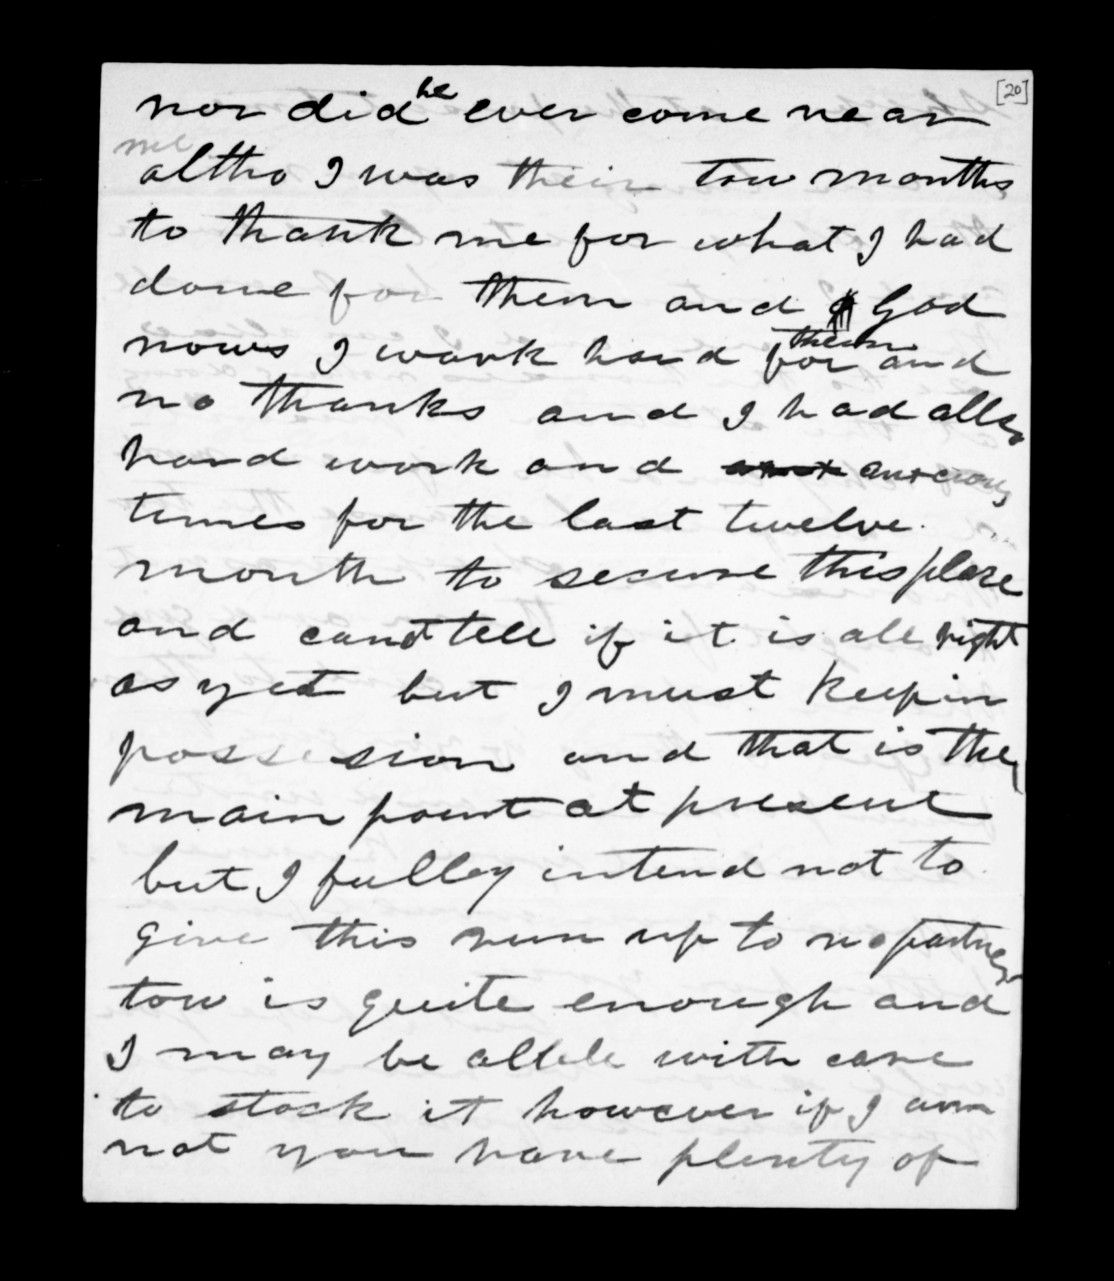 [20]
nor did he ever come near
me
altho I was their tow months
to thank me for what I had
done for them and God
nows I work hard for them and
no thanks and I had alls
hard work and anxcious
times for the last twelve
month to secure this place
and canot tell if it is all right
as yet but I must keep in
possession and that is the
main point at present
but I fulley intend not to
give this run up to no partner
tow is quite enough and
I may be allble with care
to stock it however if I am
not you have plenty of